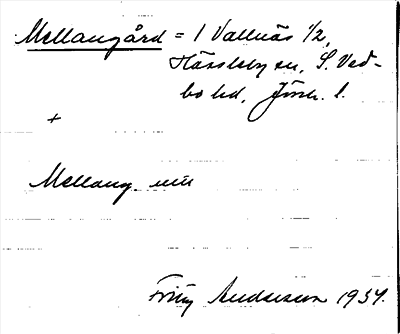 Mellangård = 1 Vallnäs 1/2,
Hässleby sn, S. Ved-
bo hd, Jönk. l.
+
Mellang
Fritz Andersson 1934.